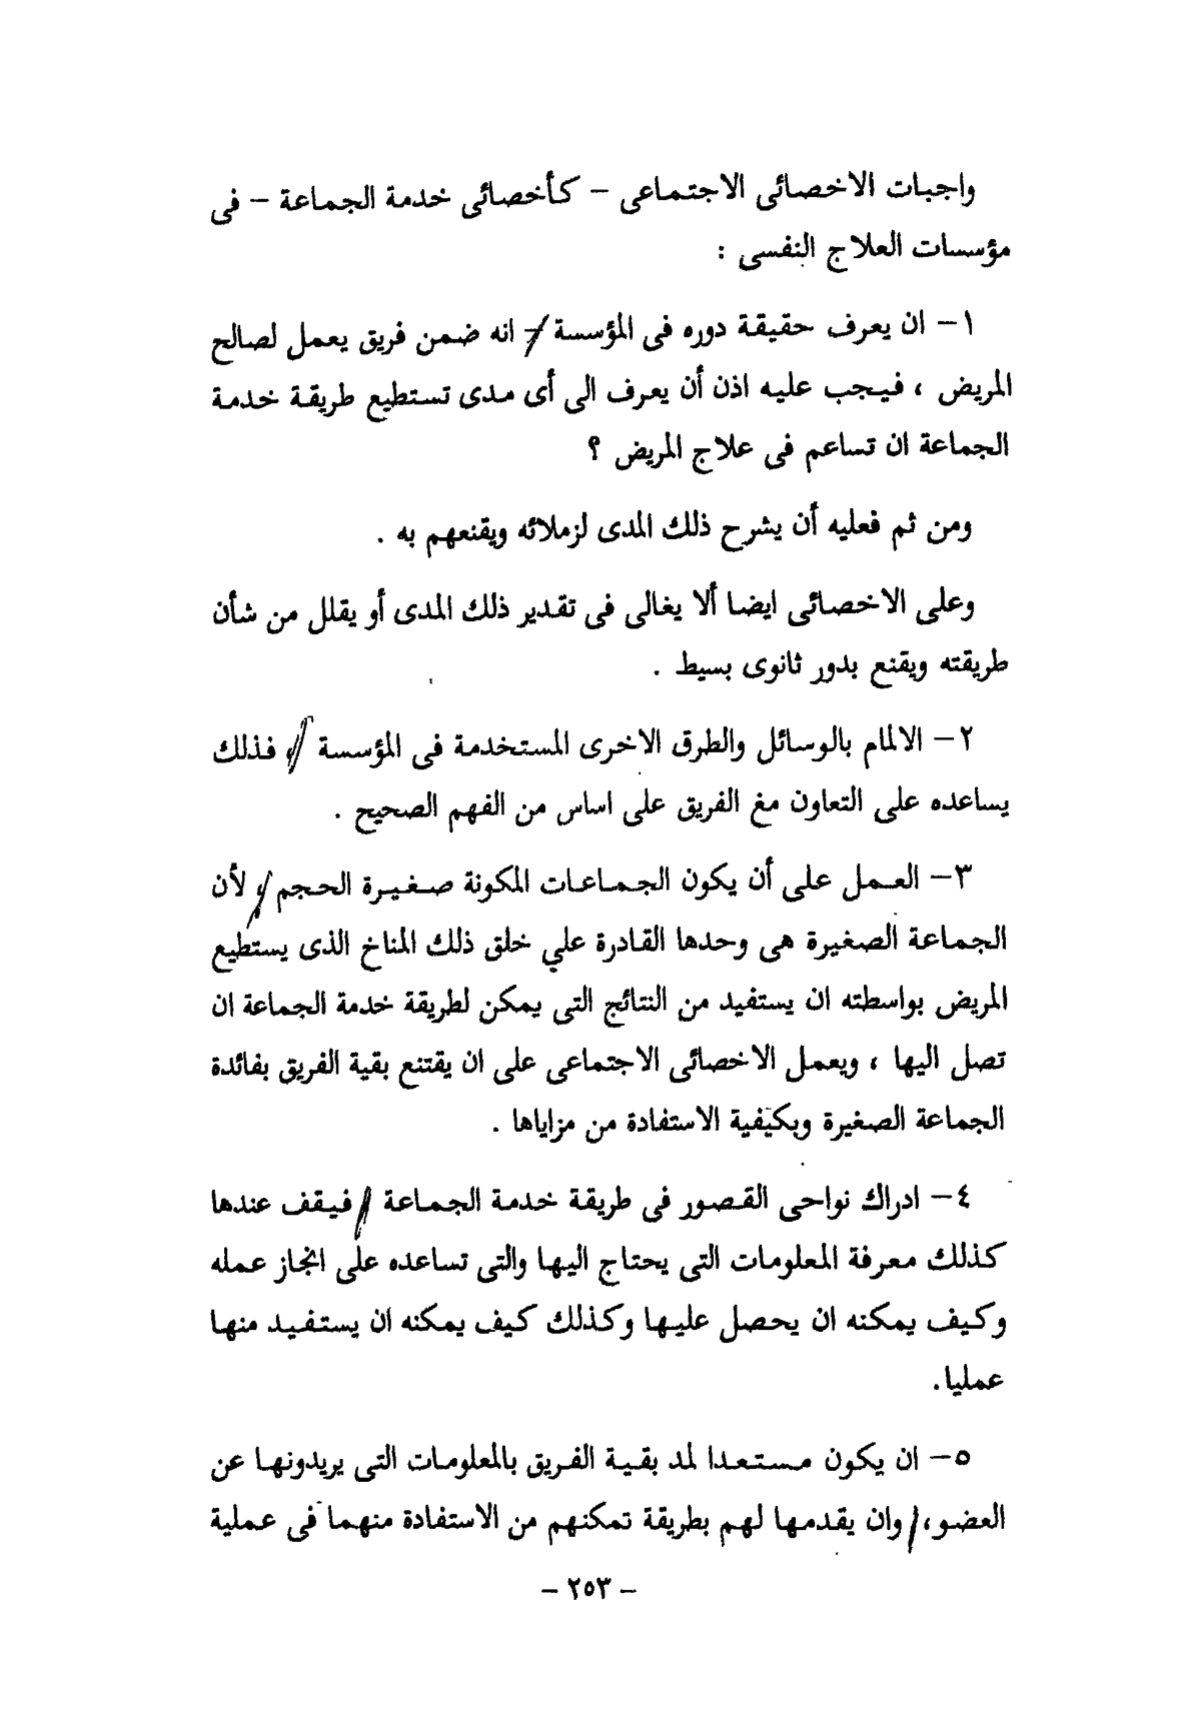 واجبات الاخصائى الاجتماعى – كأخصائى خدمة الجماعة – فى
مؤسسات العلاج النفسى :
١– ان يعرف حقيقة دوره فى المؤسسة – انه ضمن فريق يعمل لصالح
المريض ، فيجب عليه اذن أن يعرف الى أى مدى تستطيع طريقة خدمة
الجماعة ان تساعم فى علاج المريض ؟
ومن ثم فعليه أن يشرح ذلك المدى لزملائه ويقنعهم به .
وعلى الاخصائى ايضا ألا يغالى فى تقدير ذلك المدى أو يقلل من شأن
طريقته ويقنع بدور ثانوى بسيط .
٢– الالمام بالوسائل والطرق الاخرى المستخدمة فى المؤسسة ، فذلك
يساعده على التعاون مغ الفريق على اساس من الفهم الصحيح .
٣– العمل على أن يكون الجماعات المكونة صغيرة الحجم ، لأن
الجماعة الصغيرة هى وحدها القادرة علي خلق ذلك المناخ الذى يستطيع
المريض بواسطته ان يستفيد من النتائج التى يمكن لطريقة خدمة الجماعة ان
تصل اليها ، ويعمل الاخصائى الاجتماعى على ان يقتنع بقية الفريق بفائدة
الجماعة الصغيرة وبكيفية الاستفادة من مزاياها .
٤– ادراك نواحى القصور فى طريقة خدمة الجماعة فيقف عندها
كذلك معرفة المعلومات التى يحتاج اليها والتى تساعده على انجاز عمله
وكيف يمكنه ان يحصل عليها وكذلك كيف يمكنه ان يستفيد منها
عمليا.
٥– ان يكون مستعدا لمد بقية الفريق بالمعلومات التى يريدونها عن
العضو، وان يقدمها لهم بطريقة تمكنهم من الاستفادة منهما فى عملية
– ٢٥٣ –